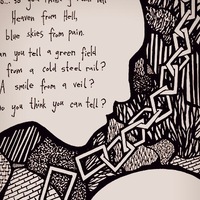 so you
Heaven from Hell,
blue skies from pain.
an you tell a green field
from a cold steel rail?
A smile from a veil?
o you think you can tell?